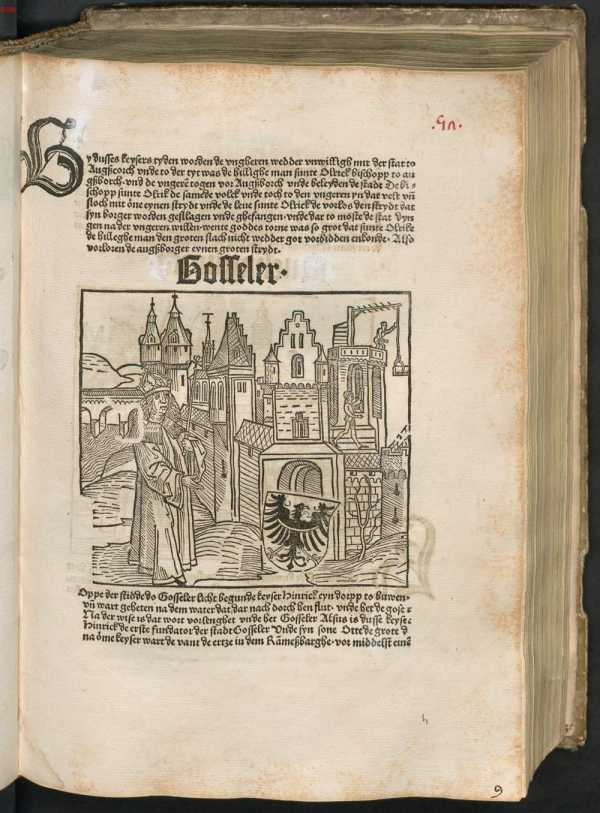 By dusses keysers tyden worden de vngheren wedder vnwilligh mit der stat to
Augsborch vnde to der tyt was de hillighe man sunte Olrick bisschopp to au
gßborch· vnd de vngerē togen vor Augßborch vnde beleyden de stadt De bi⸗
schopp sunte Olrik de samede volck vnde toch to den vngeren yn dat velt vñ
sloch mit ōne eynen strydt vnde de leue sunte Olrick de vorlos den strydt dat
syn borger worden geslagen vnde ghefangen· vnde dat to moste de stat dyn
gen na der vngeren willen· wente goddes torne was so grot dat sunte Olrike
de hilleghe man den groten slach nicht wedder got vorbidden enkonde· Also
vorloren de augßborger eynen groten strydt·
Gosseler·
Oppe der stidde do Gosseler licht begunde keyser Hinrick eyn dorpp to buwen·
vñ wart geheten na dem water dat dar nach dorch hen flut· vnde het de gose·
Na der wise is dat wort vorlenghet vnde het Gosseler Alsus is dusse keyse·
Hinrick de erste fundator der stadt Gosseler Vnde syn sone Otte de grote d
na ōme keyser wart de vant de ertze in dem Rāmeßbarghe· vor middelst einē
h
9